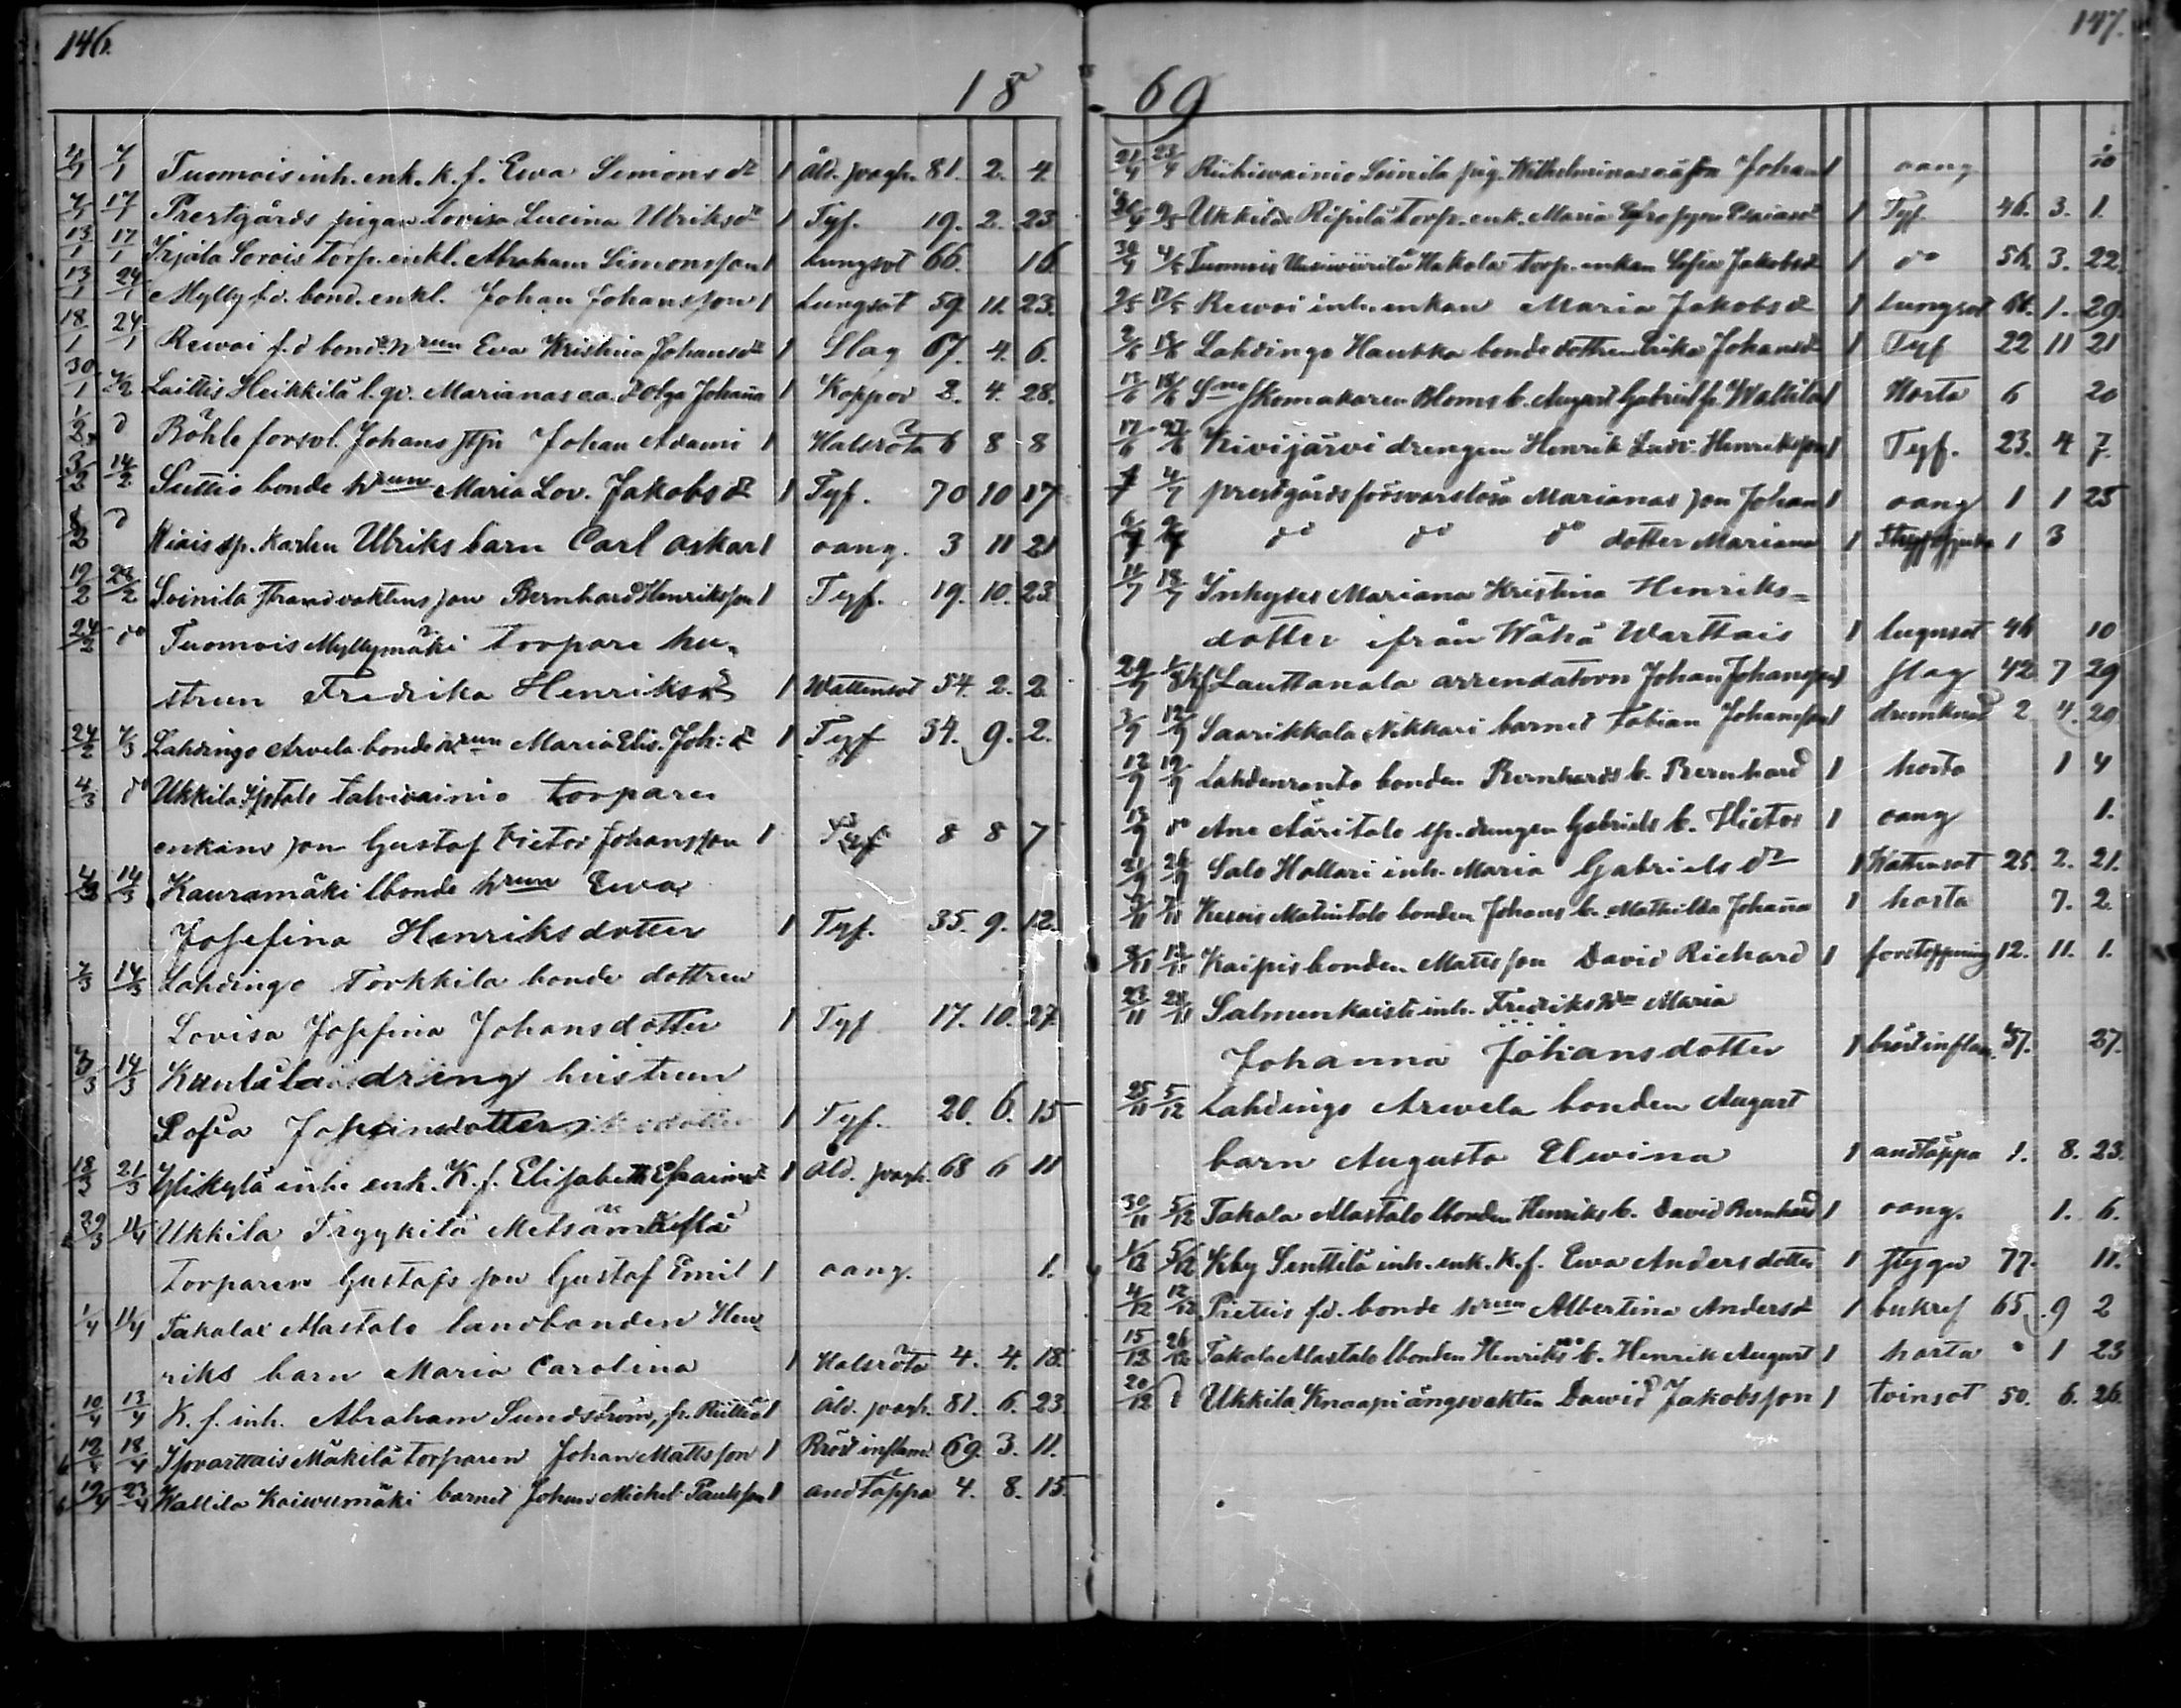 146.
18
4/1 7/1 Tuomois inh. enk. k. f. Ewa Simons dr 1 Åld. svagh. 81. 2. 4.
7/1 17/1 Prestgårds pigan Lovisa Lucina Ulriksdr 1 Tyf. 19. 2. 23
13/1 17/1 Yrjäla Sorois torp. enkl. Abraham Simonsson 1 Lungsot 66. 16.
13/1 24/1 Mylly f.d. bond. enkl. Johan Johansson 1 Lungsot 59. 11. 23.
18/1 24/1 Rewoi f.d bonde hrun Eva Kristina Johansdr 1 Slag 67. 4. 6.
30/1 7/2 Laittis Heikkilä l. qv. Marianas o.ä. d Olga Johaña 1 Koppor 2. 4. 28.
1/2 d Röhle forsvl. Johans Johan Adami 1 Halsröta 6 8 8
3/2 14/2 Suttio bonde hrun Maria Lov. Jakobs dr 1 Tyf. 70 10 17
8/2 d Wiais sp. karlen Ulriks barn Carl Oskar 1 oang. 3 11 21
19/2 28/2 Soinila strandvaktens son Bernhard Henriksson 1 Tyf. 19. 10. 23
24/2 do Tuomois Myllymäki torpare hu-
strun Fredrika Henriksdr 1 Wattensot 54. 2. 2
24/2 7/3 Lahdingo Arvela bonde hrun Maria Elis. Joh: dr 1 Tyf 34. 9. 2.
4/3 do Ukkila Talvivainio torpare
enkans son Gustaf Victor Johansson 1 Tyf 8 8 7
4/3 14/3 Kauramäki lbonde hrun Ewa
Josefina Henriksdotter 1 Tyf. 35. 9. 12.
7/3 14/3 Lahdingo Torkkila bonde dottren
Lovisa Josefina Johansdotter 1 Tyf 17. 10. 27.
7/3 14/3 dräng hustrun
Sofia 1 Tyf. 20. 6. 15
18/3 21/3 Ylikylä inh. enk. K. f. Elisabeth Efraimsdr 1 Åld. svagh. 68 6 11
29/3 11/4 Ukkila Tryykilä
torparen Gustafs son Gustaf Emil 1 oang. 1.
1/4 11/4 Takala Mastalo landbonden Hen
riks barn Maria Carolina 1 Halsröta 4. 4. 18.
10/4 13/4 K. f. inh. Abraham Sundström, fr. 1 Åld. svagh. 81. 6. 23.
12/4 18/4 Isovarttais Mäkilä torparen Johan Mattsson 1 Bröst inflam. 69. 3. 11.
19/4 23/4 Wallila Kaiwumäki barnet Johan Michel Paulsson 1 andtäppa 4. 8. 15.
147.
69
21/4 23/4 Riihiwainio Soinila pig. Wilhelminas oä son Johan 1 oang 1/10
Ukkila Ripilä torp. enk. Maria 1 Tyf 46. 3. 1.
30/4 4/5 Tuomois Hakola torp. enkan Sofia Jakobsdr 1 do 56. 3. 22.
2/5 17/5 Rewoi inh. enkan Maria Jakobs dr 1 Lungsot 66. 1. 29.
2/6 13/6 Lahdingo Haukka bonde dottren Erika Johansdr 1 Tyf 22 11 21
13/6 18/6 Skomakaren Bloms b. August Gabriel fr. Wallila 1 Hosta 6 20
17/6 27/6 Kivijärvi drengen Henrik Ludv. Henriksson 1 Tyf. 23. 4 7.
1/7 4/7 prestgårds försvarslösa Marianas son Johan 1 oang 1 1 25
do do do dotter Mariana 1 1 3
11/7 18/7 Inhyses Mariana Kristina Henriks-
dotter ifrån Wähä Warttais 1 lungsot 46 10
29/7 1/8 Kf Lauttanala arrendatorn Johan Johansson 1 slag 42 7 29
3/9 12/9 Saarikkala Nikkari barnet Fabian Johansson 1 drunknad 2 4. 20
12/9 19/9 Lahdenranta bonden Bernhards b. Bernhard 1 hosta 1 4
13/9 do Ane Ääritalo sp. drengen Gabriels b. Victor 1 oang 1.
21/9 26/9 Salo Hallari inh. Maria Gabriels dr 1 Wattensot 25. 2. 21.
3/11 7/11 Kerois Matintalo bonden Johans b. Mathilda Johaña 1 hosta 7. 2.
8/11 13/11 Kaipis bonden Matts son David Richard 1 forstoppning 12. 11. 1.
23/11 28/11 Salmenkaista inh. Fredriks hru Maria
Johanna Johansdotter 1 bröstinflam. 37. 27.
25/11 5/12 Lahdingo Arwela bonden August
barn Augusta Elwina 1 andtäppa 1. 8. 23.
30/11 5/12 Takala Mastalo lbonden Henriks b. David Bernhard 1 oang. 1. 6.
1/12 5/12 Kby Senttilä inh. enk. K. f. Ewa Andersdotter 1 stygn 77. 11.
4/12 12/12 Piettis f.d. bonde hrun Albertina Andersdr 1 bukref 65. 9 2
15/12 26/12 Takala Mastalo lbonden Henriks b. Henrik August 1 hosta " 1 23
20/12 d Ukkila Knaapi ängsvakten David Jakobsson 1 tvinsot 50. 6. 26.